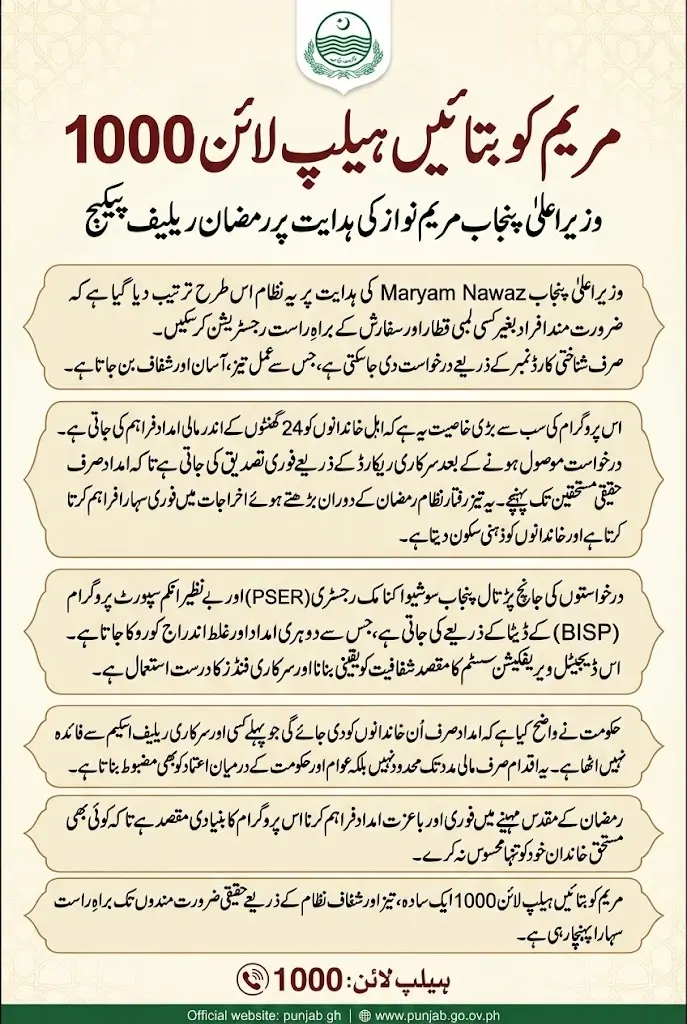 مریم کو بتائیں ہیلپ لائن 1000
وزیراعلیٰ پنجاب مریم نواز کی ہدایت پر رمضان ریلیف پیکیج
وزیراعلیٰ پنجاب Maryam Nawaz کی ہدایت پر یہ نظام اس طرح ترتیب دیا گیا ہے کہ
ضرورت مند افراد بغیر کسی لمبی قطار اور سفارش کے براہِ راست رجسٹریشن کر سکیں۔
صرف شناختی کارڈ نمبر کے ذریعے درخواست دی جا سکتی ہے، جس سے عمل تیز، آسان اور شفاف بن جاتا ہے۔
اس پروگرام کی سب سے بڑی خاصیت یہ ہے کہ اہل خاندانوں کو 24 گھنٹوں کے اندر مالی امداد فراہم کی جاتی ہے۔
درخواست موصول ہونے کے بعد سرکاری ریکارڈ کے ذریعے فوری تصدیق کی جاتی ہے تاکہ امداد صرف
حقیقی مستحقین تک پہنچے۔ یہ تیز رفتار نظام رمضان کے دوران بڑھتے ہوئے اخراجات میں فوری سہارا فراہم کرتا
کرتا ہے اور خاندانوں کو ذہنی سکون دیتا ہے۔
درخواستوں کی جانچ پڑتال پنجاب سوشیو اکنامک رجسٹری (PSER) اور بے نظیر انکم سپورٹ پروگرام
(BISP) کے ڈیٹا کے ذریعے کی جاتی ہے، جس سے دوہری امداد اور غلط اندراج کو روکا جاتا ہے۔
اس ڈیجیٹل ویریفکیشن سسٹم کا مقصد شفافیت کو یقینی بنانا اور سرکاری فنڈز کا درست استعمال ہے۔
حکومت نے واضح کیا ہے کہ امداد صرف اُن خاندانوں کو دی جائے گی جو پہلے کسی اور سرکاری ریلیف اسکیم سے فائدہ
نہیں اٹھا ہے۔ یہ اقدام صرف مالی مدد تک محدود نہیں بلکہ عوام اور حکومت کے درمیان اعتماد کو بھی مضبوط بناتا ہے۔
رمضان کے مقدس مہینے میں فوری اور باعزت امداد فراہم کرنا اس پروگرام کا بنیادی مقصد ہے تاکہ کوئی بھی
مستحق خاندان خود کو تنہا محسوس نہ کرے۔
مریم کو بتائیں ہیلپ لائن 1000 ایک سادہ، تیز اور شفاف نظام کے ذریعے حقیقی ضرورت مندوں تک براہِ راست
سہارا پہنچا رہی ہے۔
ہیلپ لائن: 1000
Official website: punjab.gh | www.punjab.go.ov.ph